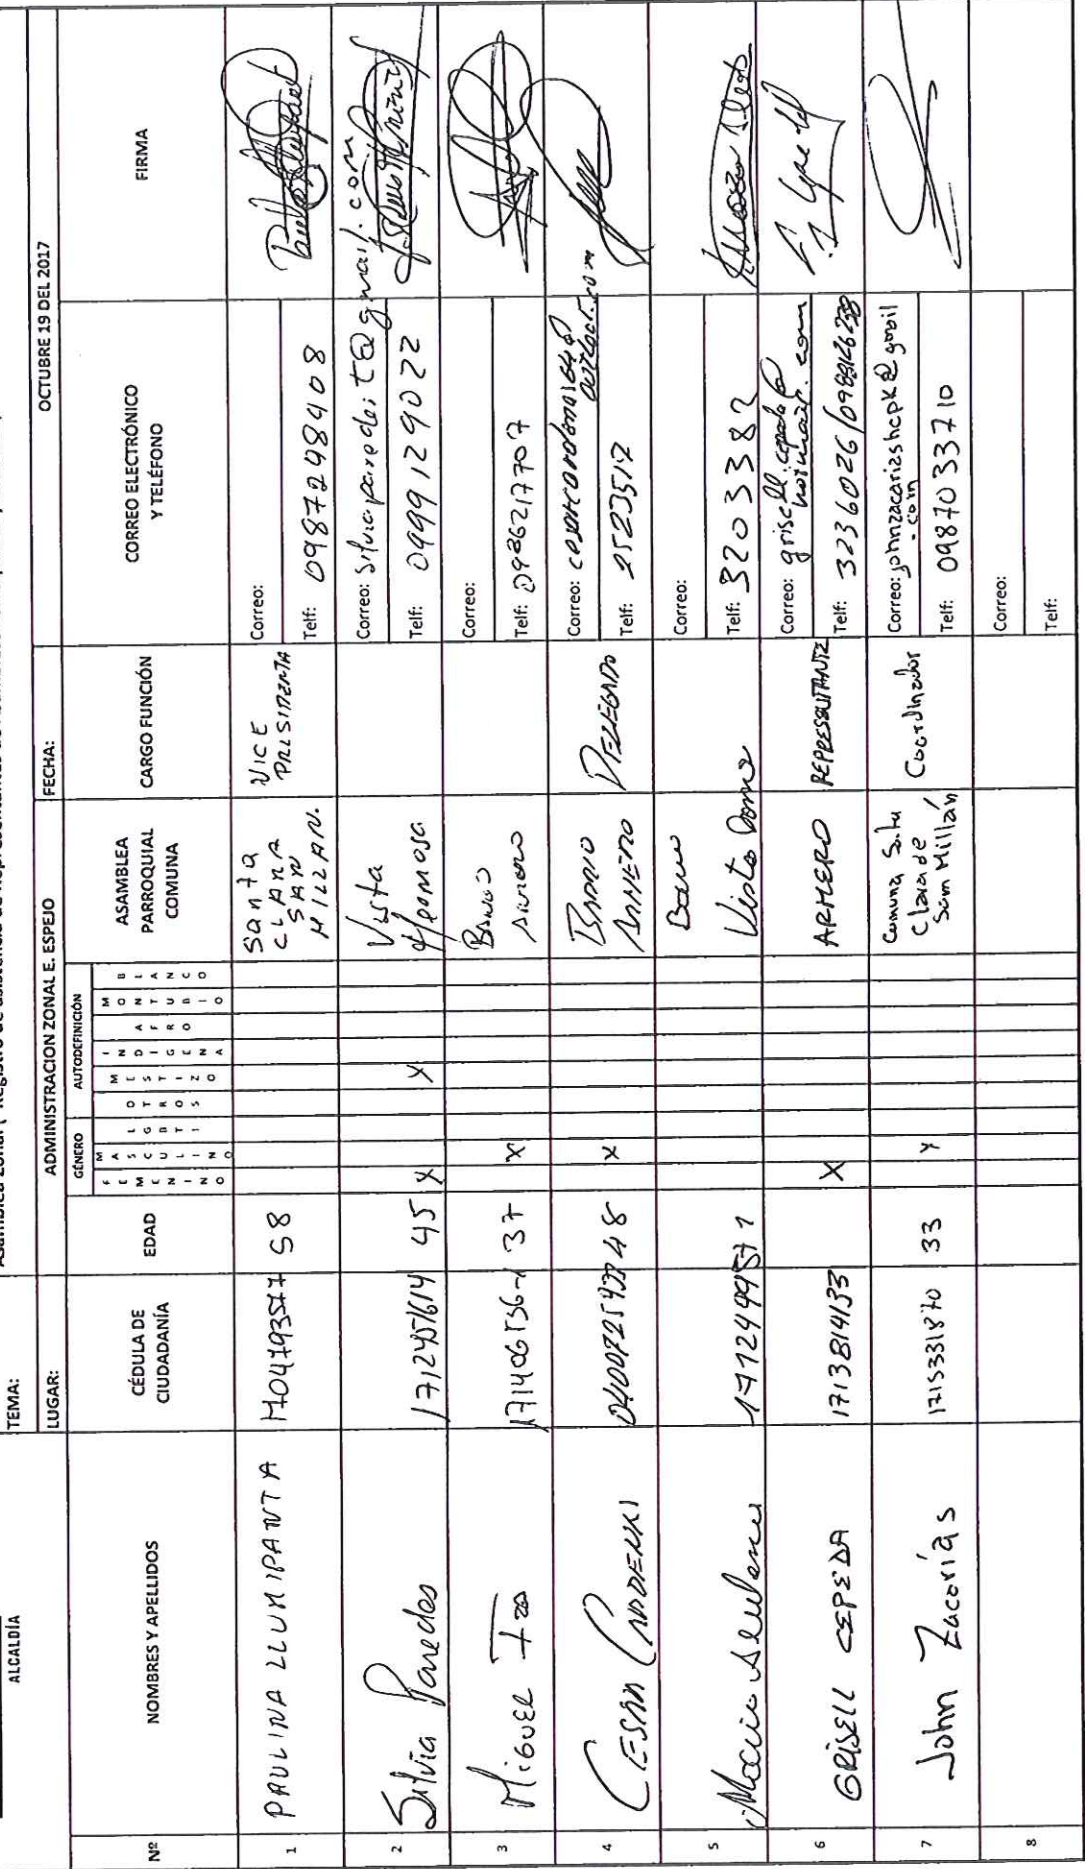 ALCALDÍA
TEMA:
LUGAR:
ADMINISTRACION ZONAL E. ESPEJO
FECHA:
OCTUBRE 19 DEL 2017
Nº
NOMBRES Y APELLIDOS
CÉDULA DE
CIUDADANÍA
EDAD
GÉNERO
FEMENINO
MASCULINO
LGBTI
AUTODEFINICIÓN
MESTIZO
INDIGENA
MONTUBIO
BLANCO
ASAMBLEA
PARROQUIAL
COMUNA
CARGO FUNCIÓN
CORREO ELECTRÓNICO
Y TELÉFONO
FIRMA
1
PAULINA LLUMIPANTA
1704793577
58
Santa
CLARA
SAN
MILLAN.
VICE
PRESIDENTA
Correo:
Telf: 0987298408
2
Silvia Paredes
45
X
X
Vista
Hermosa
Correo: silviaparedeit@gmail.com
Telf: 0999129022
3
Miguel
37
X
Barrio
Armero
Correo:
Telf: 0986217707
4
CESAR
48
X
BARRIO
ARMERO
DELEGADO
Correo:
outlook.com
Telf: 2523517
5
Maria
Barrio
Correo:
Telf: 3203383
6
GRISELL CEPEDA
1713814133
X
ARMERO
REPRESENTANTE
Correo: grisell.cepeda@
hotmail.com
Telf: 3236026/
7
John Zacarías
1715331870
33
X
Comuna Santa
Clara de
San Millán
Coordinador
Correo: johnzacariashcpk@gmail
.com
Telf: 0987033710
8
Correo:
Telf: